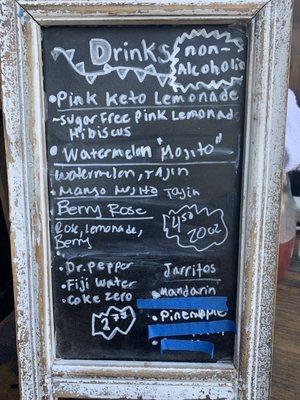 Drinks
non-
Alcoholic
• Pink Keto Lemonade
~ Sugar Free Pink Lemonade
Hibiscus
• Watermelon "Mojito"
Watermelon, Tajin
• Mango Mojito Tajin
Berry Rose
Rose, Lemonade,
Berry
4.50
20oz
• Dr. Pepper
• Fiji Water
• Coke Zero
Jarritos
• Mandarin
• Pineapple